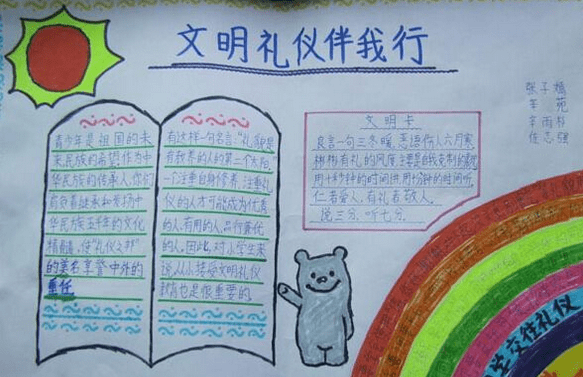 文明礼仪伴我行
张子嫣
李苑
辛雨柊
任志强
青少年是祖国的未
来,民族的希望,作为中
华民族的传承人,你们
有效着继承和发扬中
华民族五千年的文化
精髓,使"礼仪之邦"
的美名享誉中外的
重任
有这样一句名言:"礼貌是
有教养的人的第二个太阳"
一个注重自身修养、注重礼
仪的人才可能成为优秀
的人,有用的人,品行高优
的人,因此,对小学生来
说,从小接受文明礼仪
教育也是很重要的
文明卡
良言一句三冬暖,恶语伤人六月寒
彬彬有礼的风度主要是自我克制的表现
用十分钟的时间讲,用分钟的时间听
仁者爱人,有礼者敬人。
说三分,听七分。
交往礼仪